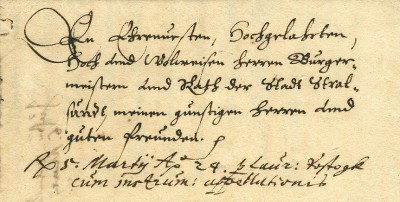 Den Ehrnuesten, Hochgelahrten,
Hoch und Wolweisen herren Burger-
meistern und Rath der Stadt Stral-
sundt, meinen gunstigen herren und
guten freunden.
5. Martij Aº 24. Laur:
cum instrum: appellationis